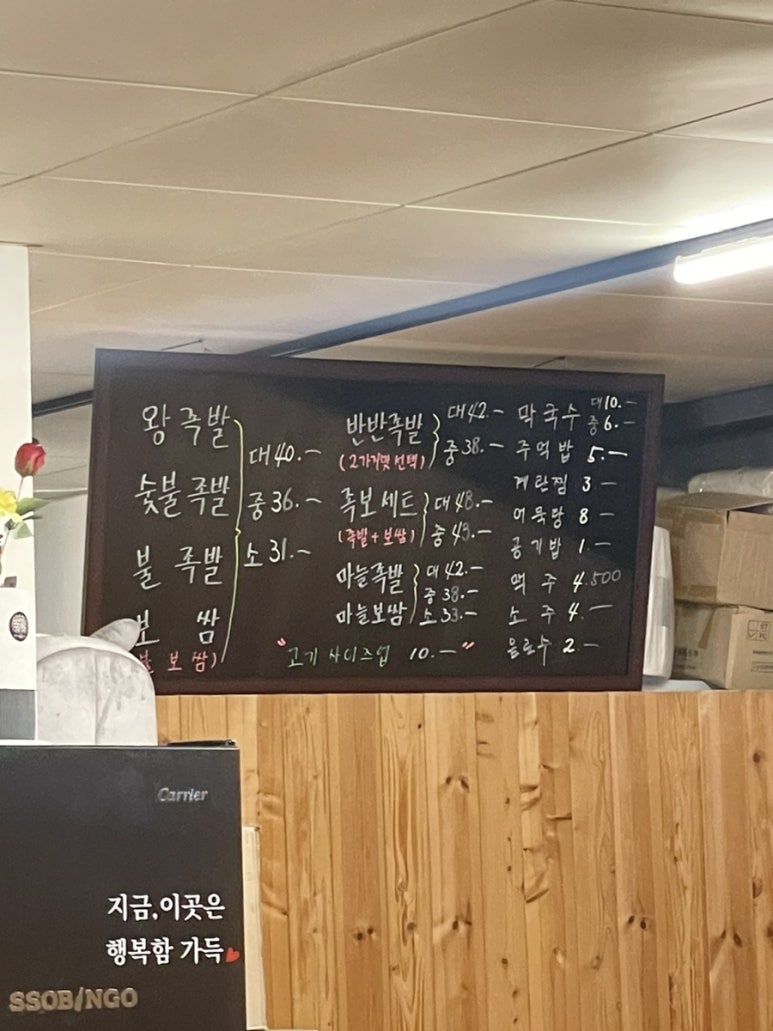 왕족발
숯불족발
불 족발
보 쌈
보 쌈)
대 40.-
중 36.-
소 31.-
반반족발 대 42.-
(2가지맛 선택) 중 38.-
족보세트 대 48.-
(족발+보쌈) 중 43.-
마늘족발 대 42.-
중 38.-
마늘보쌈 소 33.-
"고기 사이즈업 10.-"
막국수 대 10.-
중 6.-
주먹밥 5.-
계란찜 3-
어묵탕 8-
공기밥 1-
맥 주 4.500
소 주 4.-
음료수 2.-
Carrier
지금,이곳은
행복함 가득
SSOBINGO